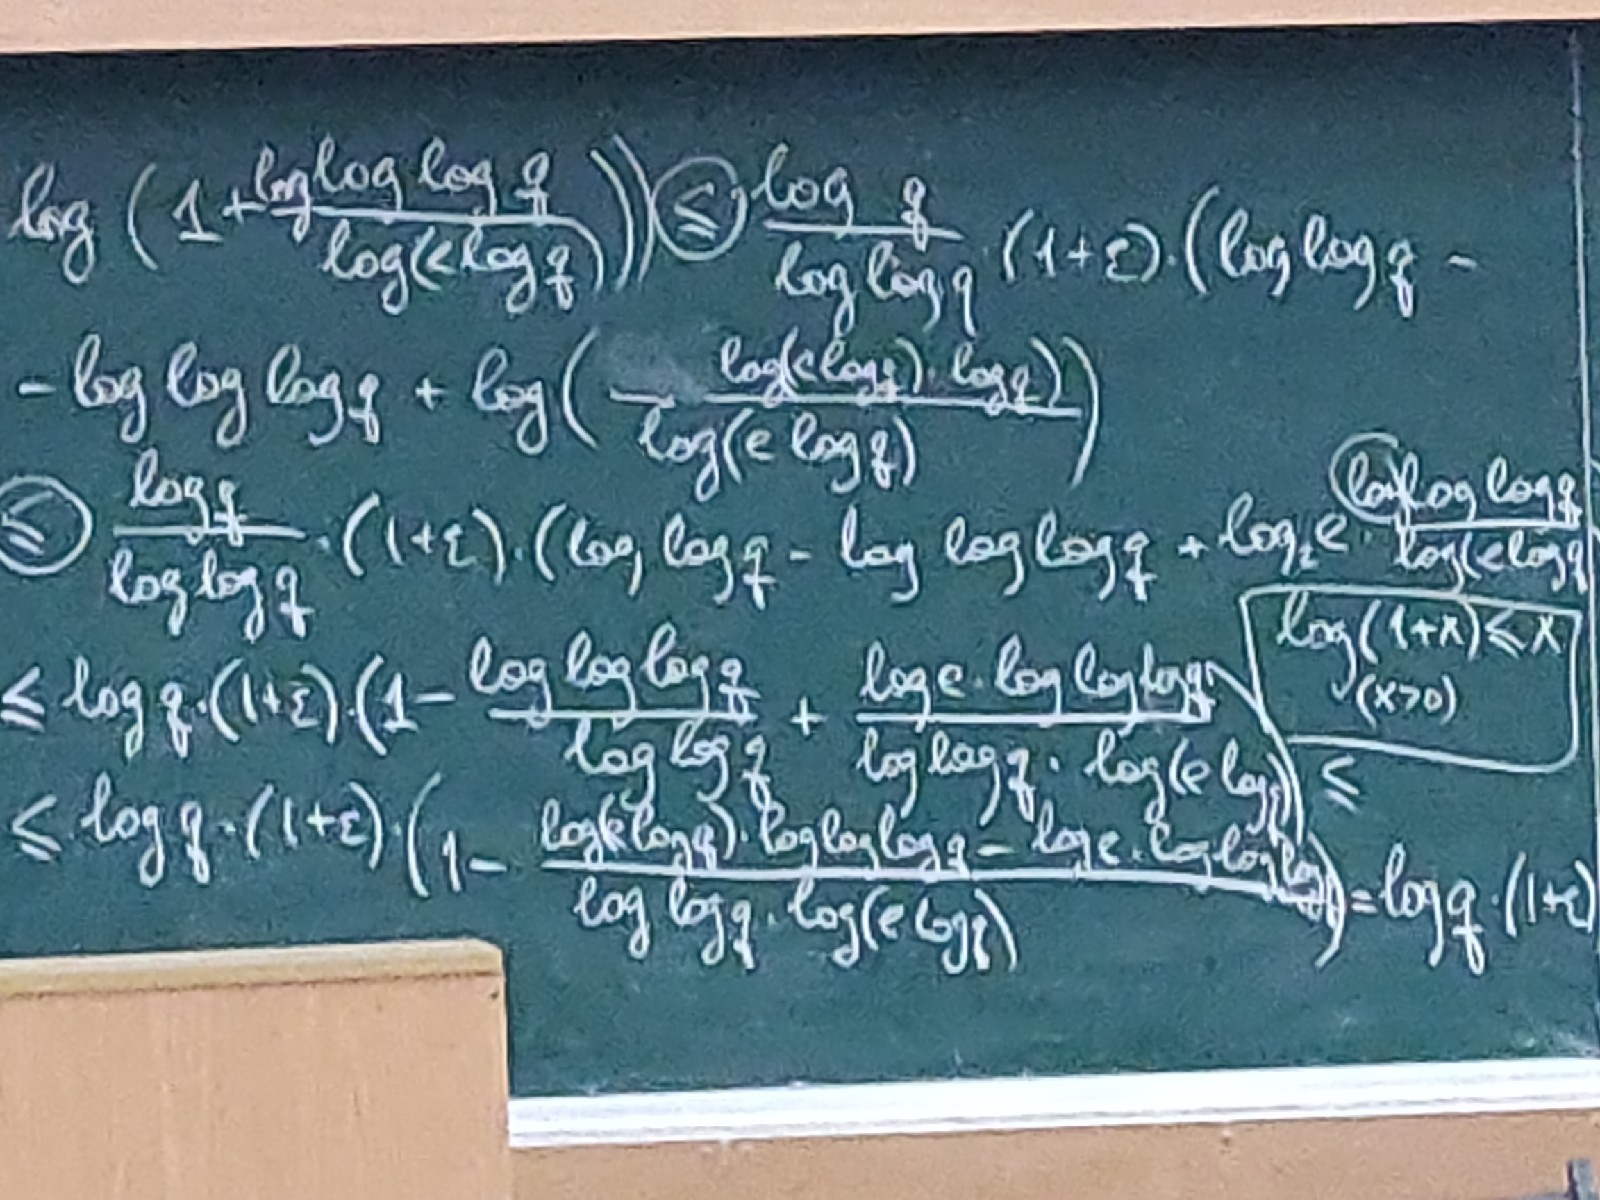 log (1 + log log log q / log(e log q))) ≤ log q / log log q · (1+ε) · (log log q -
- log log log q + log( log(e log q) · log q) / log(e log q) )
≤ log q / log log q · (1+ε) · (log log q - log log log q + log₂ e · log log log q / log(e log q
log(1+x) ≤ x
(x>0)
≤ log q · (1+ε) · (1 - log log log q / log log q + log e · log log log q / log log q · log(e log q) ≤
≤ log q · (1+ε) · (1 - log(e log q) · log log log q - log e · log log log q / log log q · log(e log q) ) = log q · (1+ε)